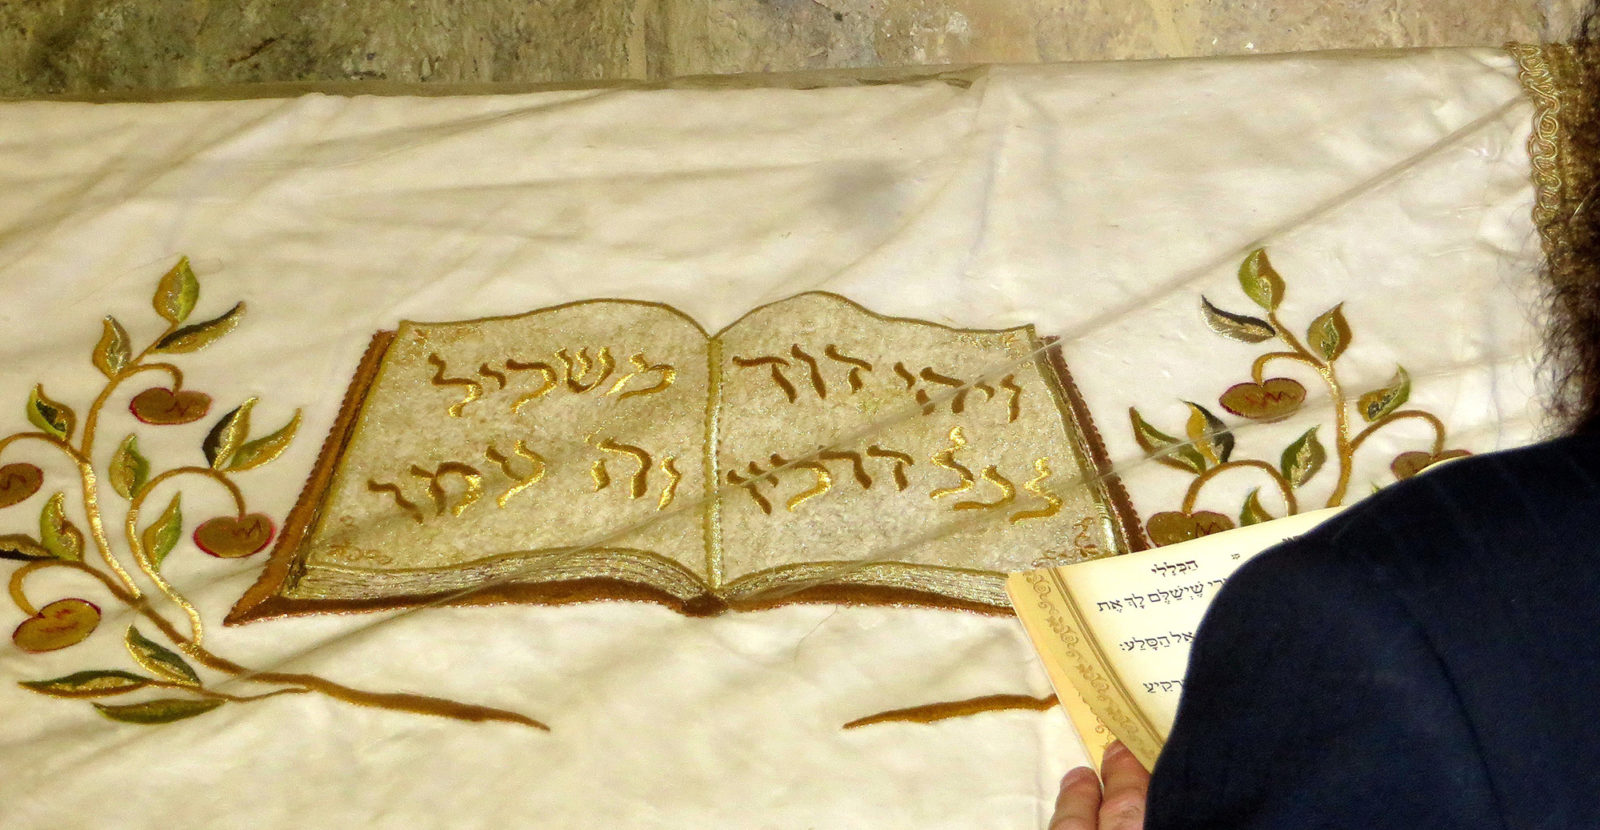 ויהי דוד
לכל דרכיו
משכיל
וה עמו
הַכְּלָלִי
שֶׁיְשַׁלֵּם לָךְ אֶת
אֶל הַסֶּלַע: